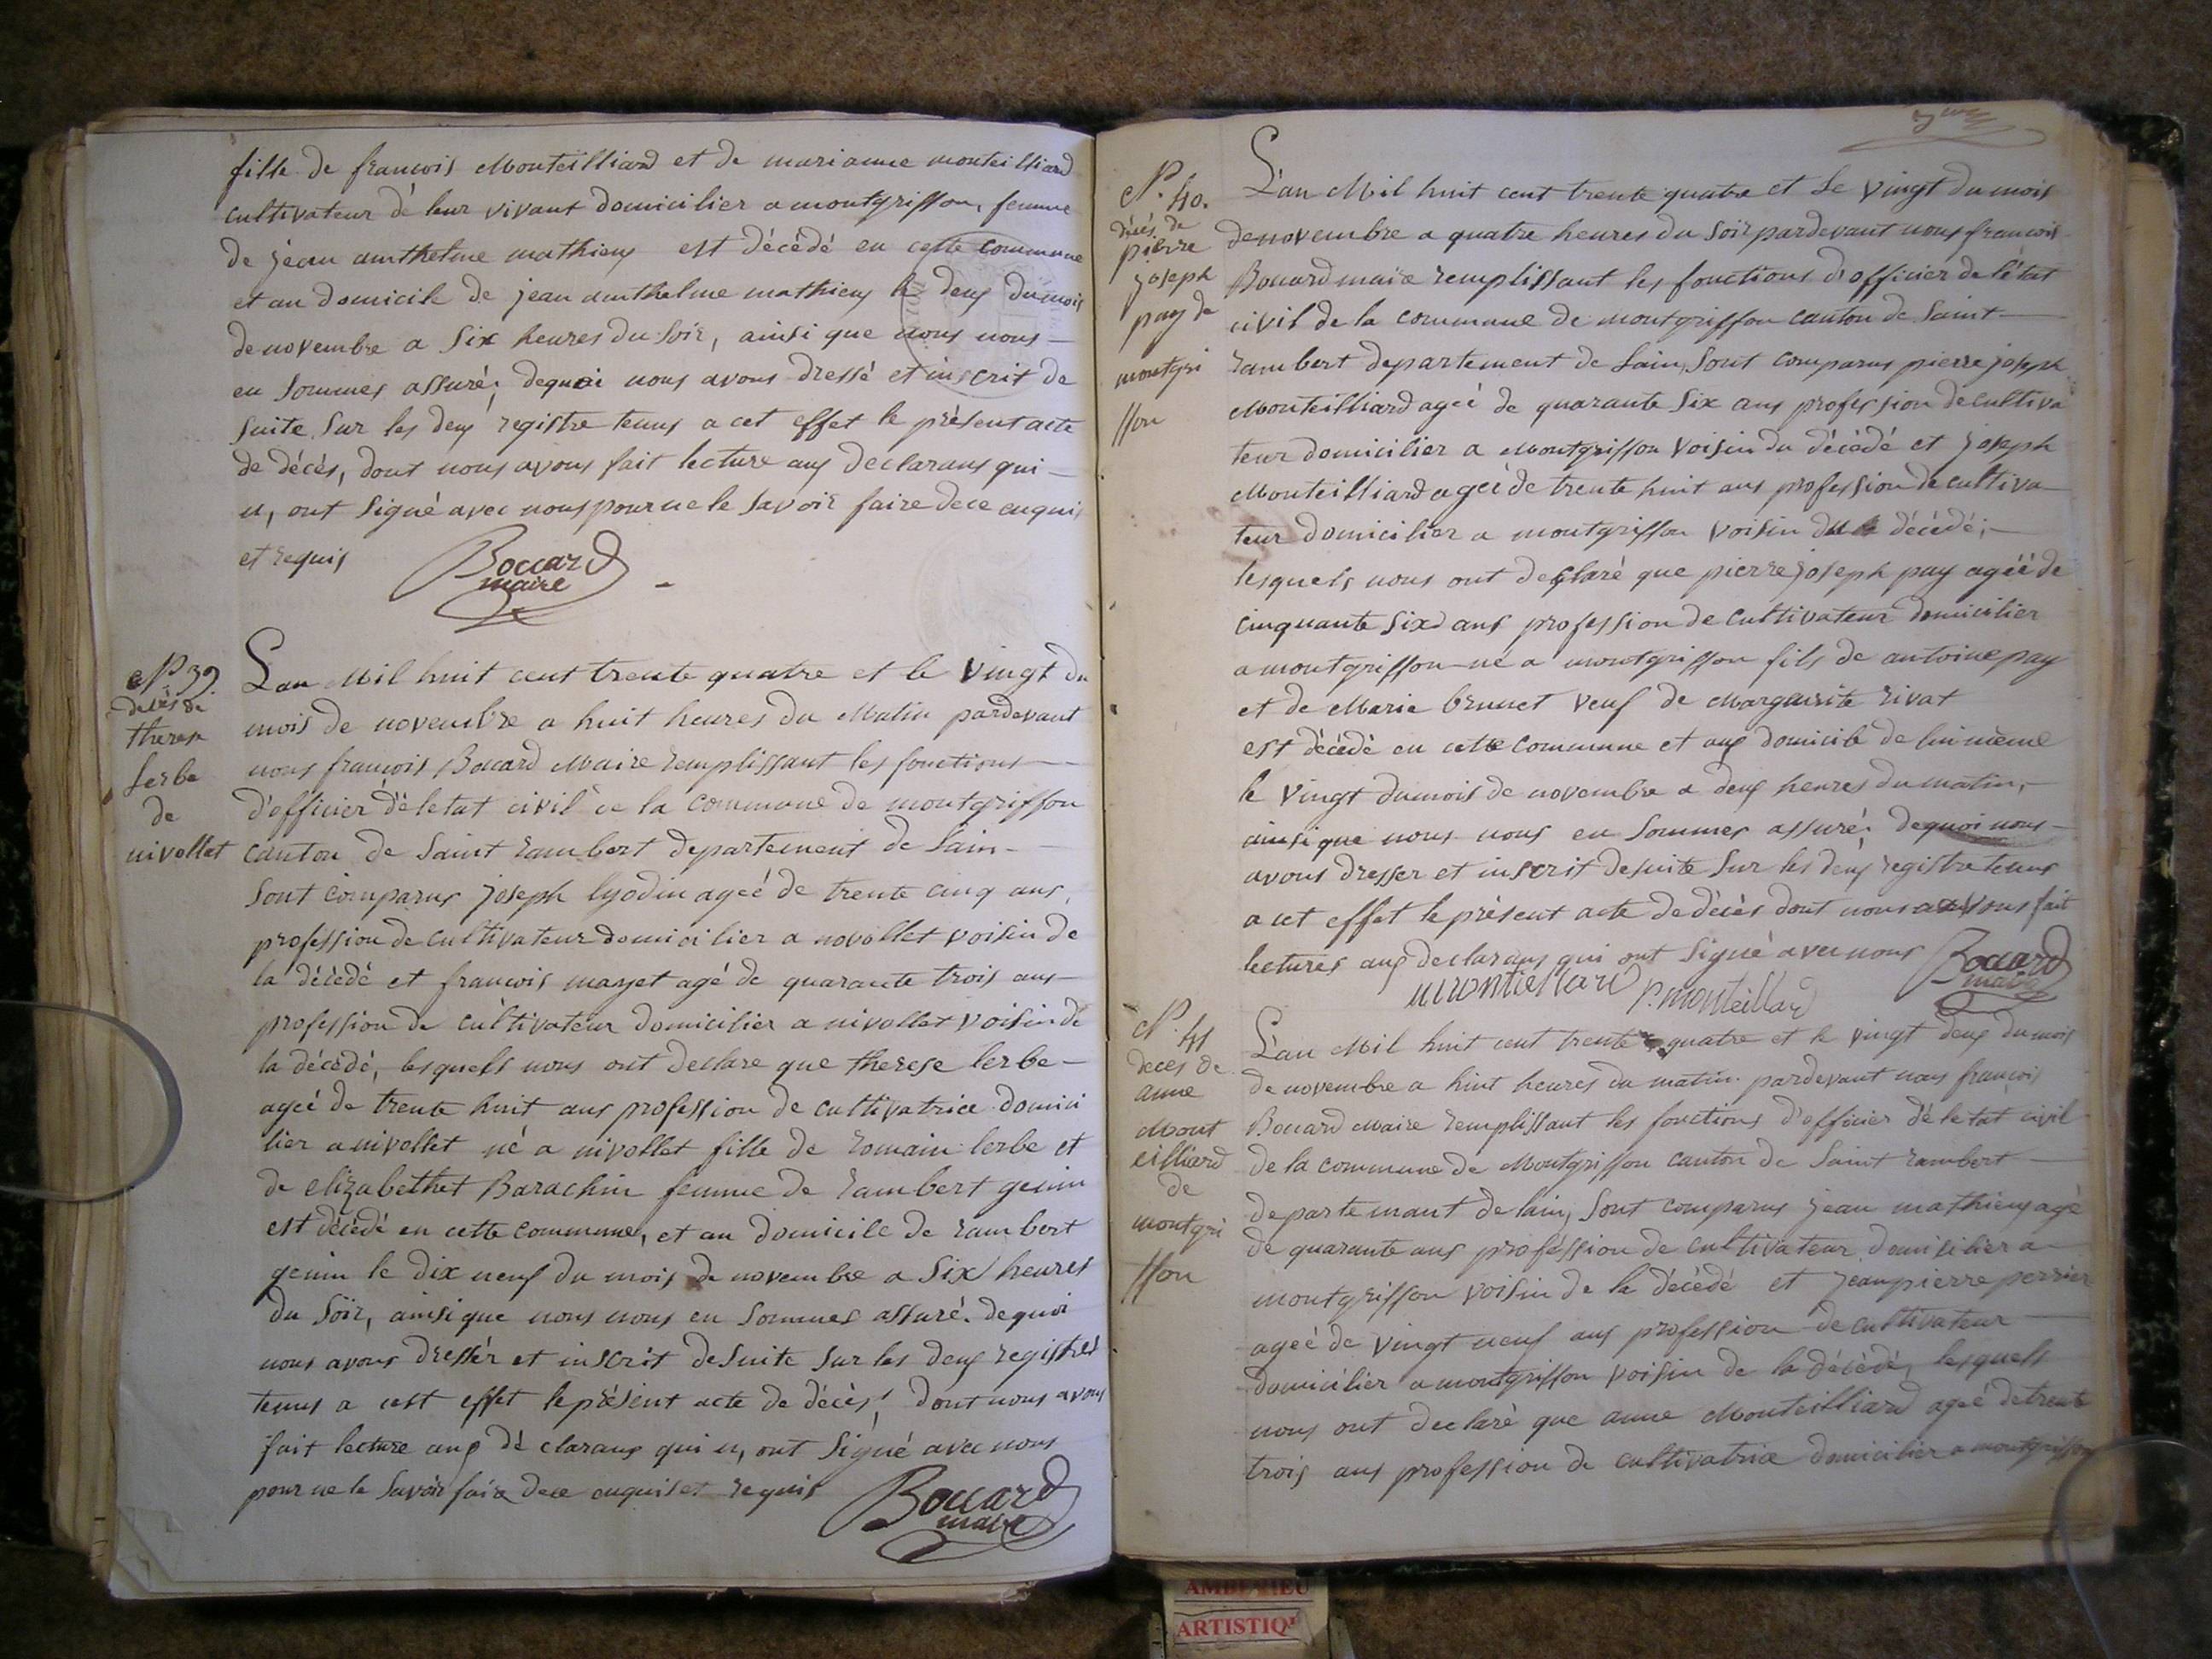 fille de francois Monteilliard et de marianne monteilliard
cultivateur dé leur vivant domicilier a montgriffon, femme
de jean anthelme mathieux est décédé en cette commune
et au domicile de jean anthelme mathieux le deux du mois
de novembre a Six heures du Soir, ainsi que nous nous
en Sommes assuré; dequoi nous avons dressé et inscrit de
suite Sur les deux registre tenus a cet effet le présent acte
de décès, dont nous avons fait lecture aux declarans qui
n, ont Signé avec nous pour ne le Savoir faire de ce enquis
et requis Boccard
maire
N° 39.
décés de
therese
Serbe
de
nivollet
L'an Mil huit cent trente quatre et le vingt du
mois de novembre a huit heures du Matin pardevant
nous francois Boccard Maire remplissant les fonctions
d'officier dé letat civil de la commune de montgriffon
canton de Saint rambert departement de Lain
Sont comparus joseph lyodin ageé de trente cinq ans,
profession de cultivateur domicilier a novollet voisin de
la décédé et francois marjet agé de quarante trois ans
profession de cultivateur domicilier a nivollet voisin de
la décédé, lesquels nous ont declare que therese lerbe
ageé de trente huit ans profession de cultivatrice domici
lier a nivollet né a nivollet fille de romain lerbe et
de elizabethet Barachin femme de rambert genin
est décédé en cette commune, et au domicile de rambert
genin le dix neuf du mois de novembre a Six heures
du Soir, ainsi que nous nous en Sommes assuré. dequoi
nous avons dressér et inscrit desuite Sur les deux registres
tenus a cest effet le présent acte de décès, dont nous avons
fait lecture aux dé clarans qui n, ont Signé avec nous
pour ne le Savoir faire de ce enquis et requis Boccard
maire
N°. 40.
décés de
pierre
joseph
pay de
montgri
ffon
L'an Mil huit cent trente quatre et Le vingt du mois
de novembre a quatre heures du Soir pardevant nous francois
Boccard maire remplissant les fonctions d'officier de létat
civil de la commune de montgriffon canton de Saint
rambert departement de Lain, Sont comparus pierre joseph
Monteilliard ageé de quarante Six ans profession de cultiva
teur domicilier a Montgriffon voisin du décédé et joseph
Monteilliard ageé de trente huit ans profession de cultiva
teur domicilier a montgriffon voisin du décédé;
lesquels nous ont declaré que pierre joseph pay ageé de
cinquante Six ans profession de cultivateur domicilier
a montgriffon né a montgriffon fils de antoine pay
et de Marie brunet veuf de Marguerite rivat
est décédé en cette commune et aux domicile de lui même
le vingt du mois de novembre a deux heures du matin,
ainsi que nous nous en Sommes assuré; dequoi nous
avons dresser et inscrit desuite Sur les deux registre tenus
a cet effet le présent acte de décés dont nous avons fait
lectures aux declarans qui ont Signé avec nous Boccard
maire
P. monteillard
N°. 41
deces de
anne
Mont
eilliard
de
montgri
ffon
L'an Mil huit cent trente quatre et le vingt deux du mois
de novembre a huit heures du matin pardevant nous francois
Boccard Maire remplissant les fonctions d'officier dé letat civil
de la commune de Montgriffon canton de Saint rambert
departemant de lain, Sont comparus jean mathieux agé
de quarante ans profession de cultivateur domisilier a
montgriffon voisin de la décédé et jean pierre perrier
ageé de vingt neuf ans profession de cultivateur
domicilier a montgriffon voisin de la décédé, lesquels
nous ont declaré que anne Monteilliard ageé de trente
trois ans profession de cultivatrice domicilier a montgriffon
AMBERIEU
ARTISTIQU